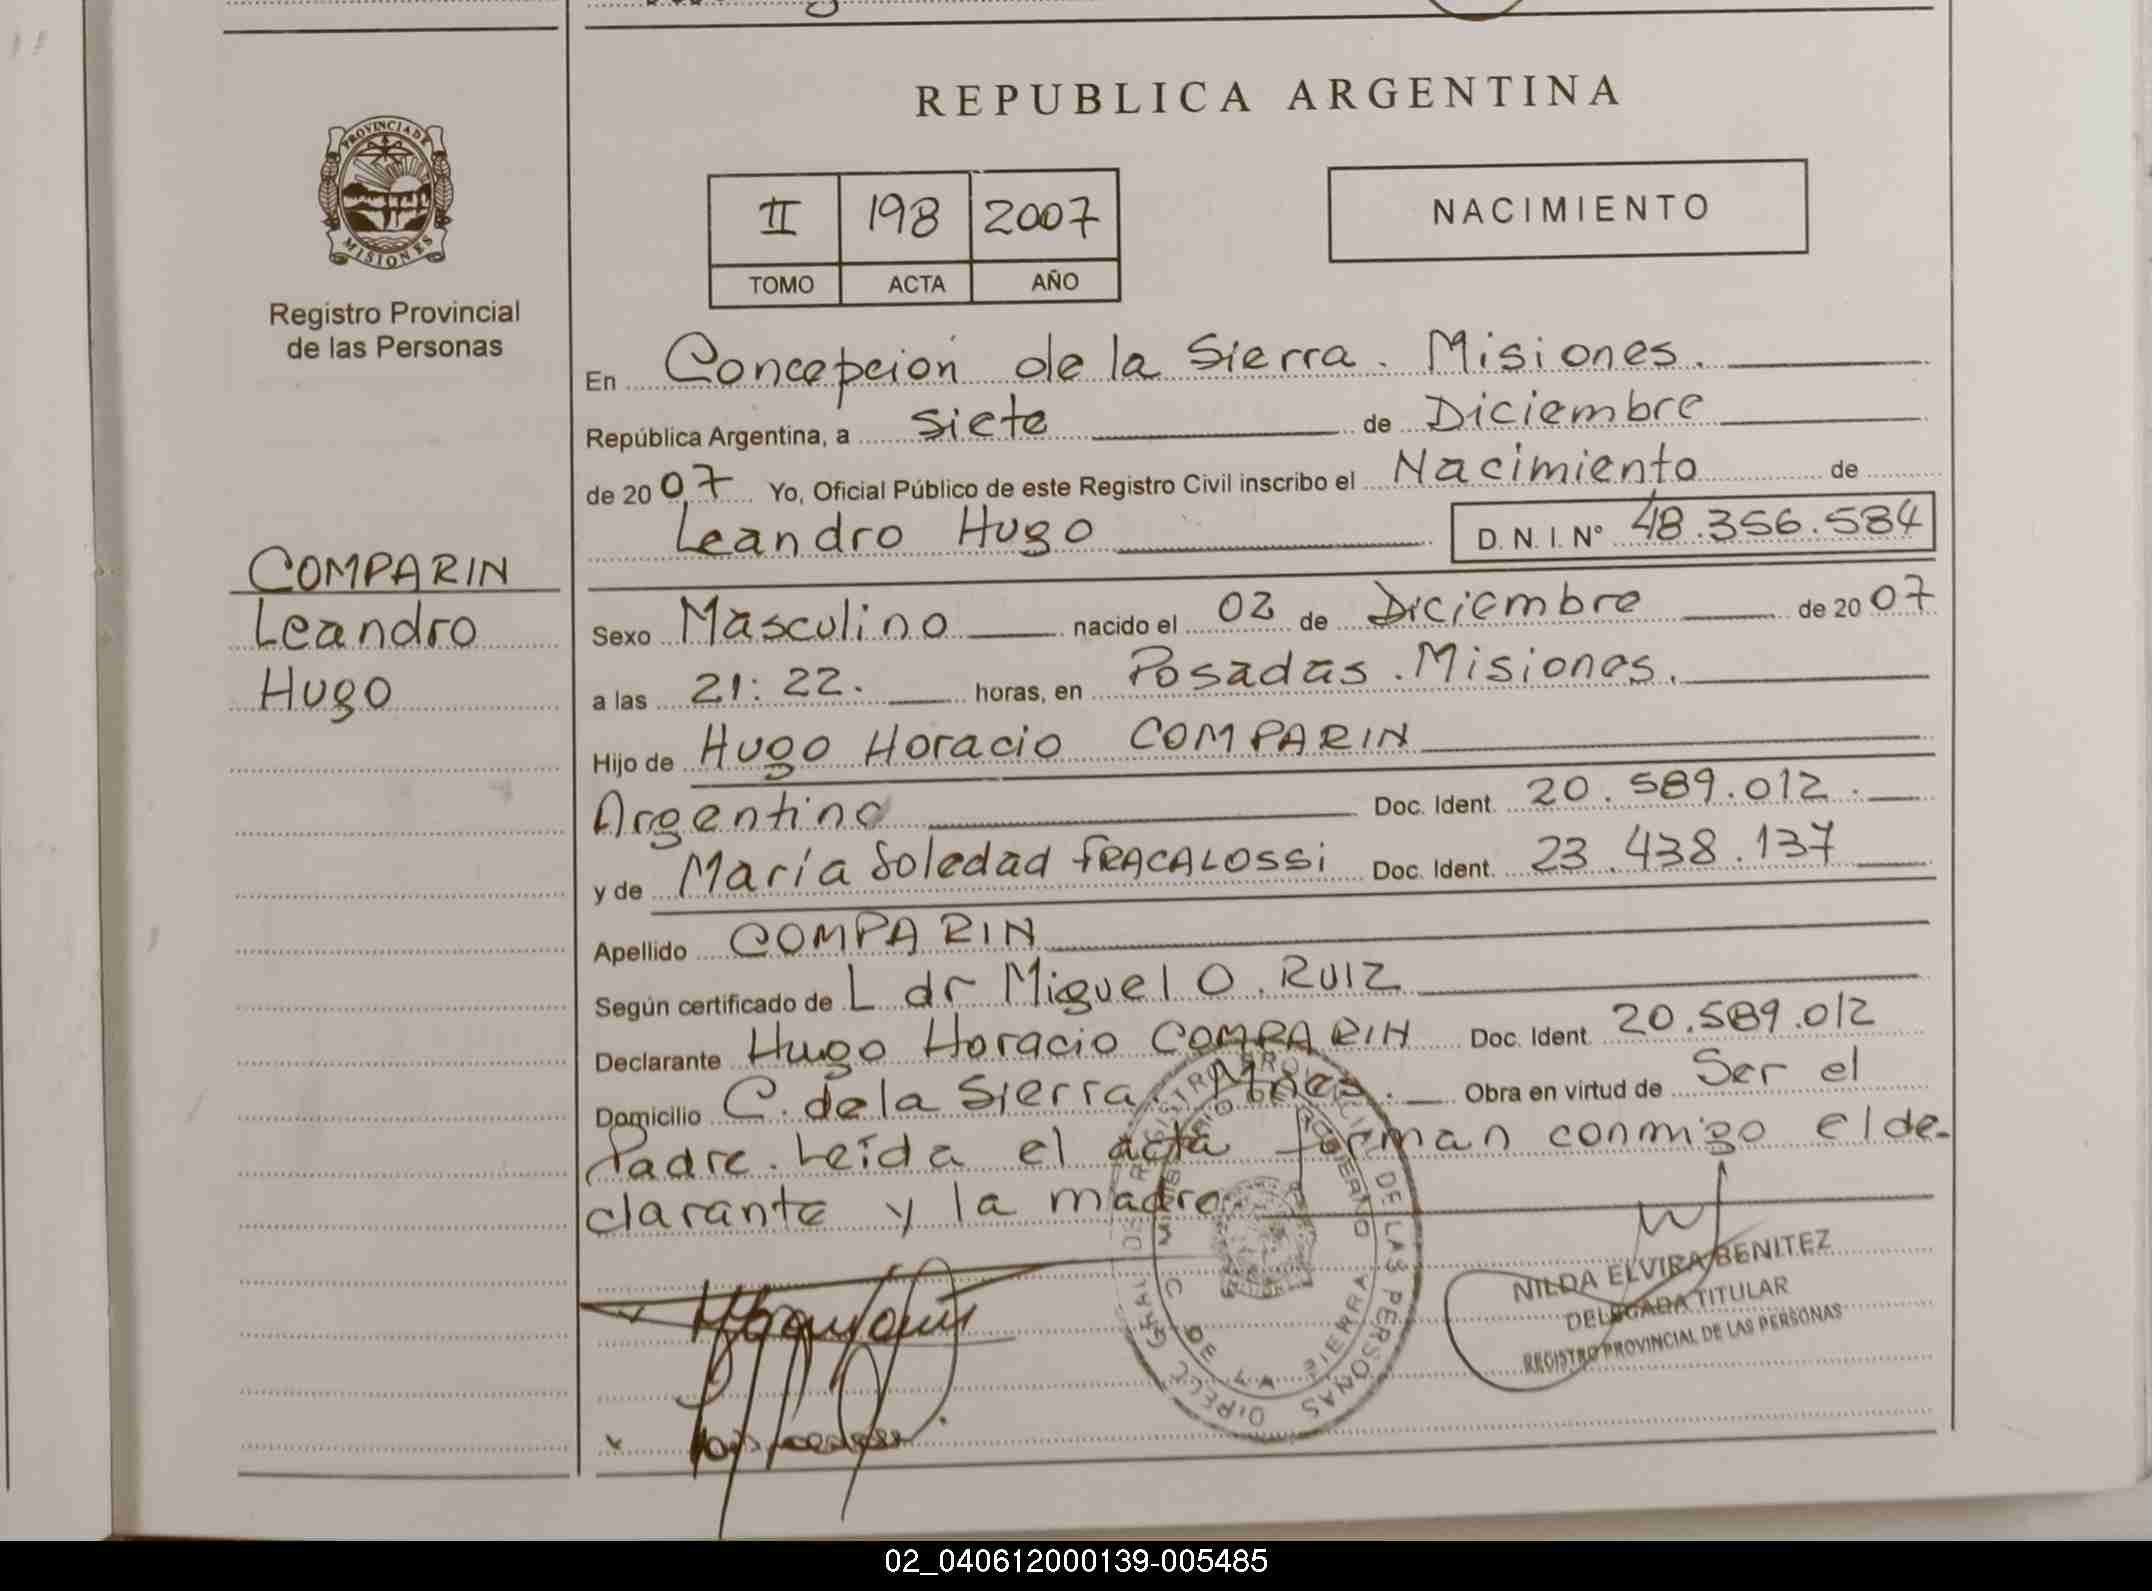 REPUBLICA ARGENTINA
PROVINCIA DE MISIONES
Registro Provincial
de las Personas
II 198 2007
TOMO ACTA AÑO
NACIMIENTO
En Concepción de la Sierra. Misiones.
República Argentina, a siete de Diciembre
de 2007 Yo, Oficial Público de este Registro Civil inscribo el Nacimiento de
Leandro Hugo D. N. I. Nº 48.356.584
COMPARIN
Leandro
Hugo
Sexo Masculino nacido el 02 de Diciembre de 2007
a las 21:22. horas, en Posadas. Misiones.
Hijo de Hugo Horacio COMPARIN
Argentino Doc. Ident. 20.589.012.
y de María Soledad FRACALOSSI Doc. Ident. 23.438.137
Apellido COMPARIN
Según certificado de L dr Miguel O. RUIZ
Declarante Hugo Horacio COMPARIN Doc. Ident. 20.589.012
Domicilio C. de la Sierra. Mnes. Obra en virtud de Ser el
Padre. Leída el acta forman conmigo el de-
clarante y la madre
NILDA ELVIRA BENITEZ
DELEGADA TITULAR
REGISTRO PROVINCIAL DE LAS PERSONAS
02_040612000139-005485